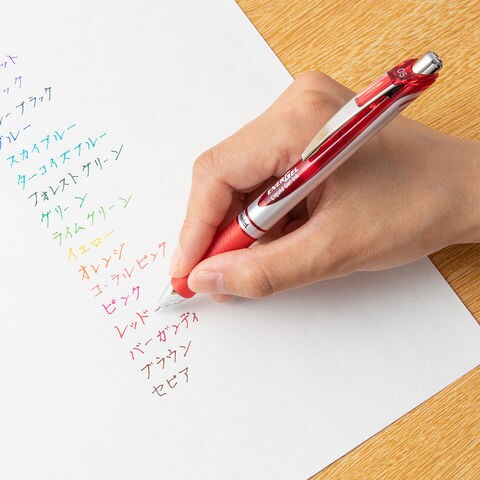 ット
ック
ーブラック
ブルー
スカイブルー
ターコイズブルー
フォレストグリーン
グリーン
ライムグリーン
イエロー
オレンジ
コーラルピンク
ピンク
レッド
バーガンディ
ブラウン
セピア
05
ENERGEL
Liquid Gel Ink